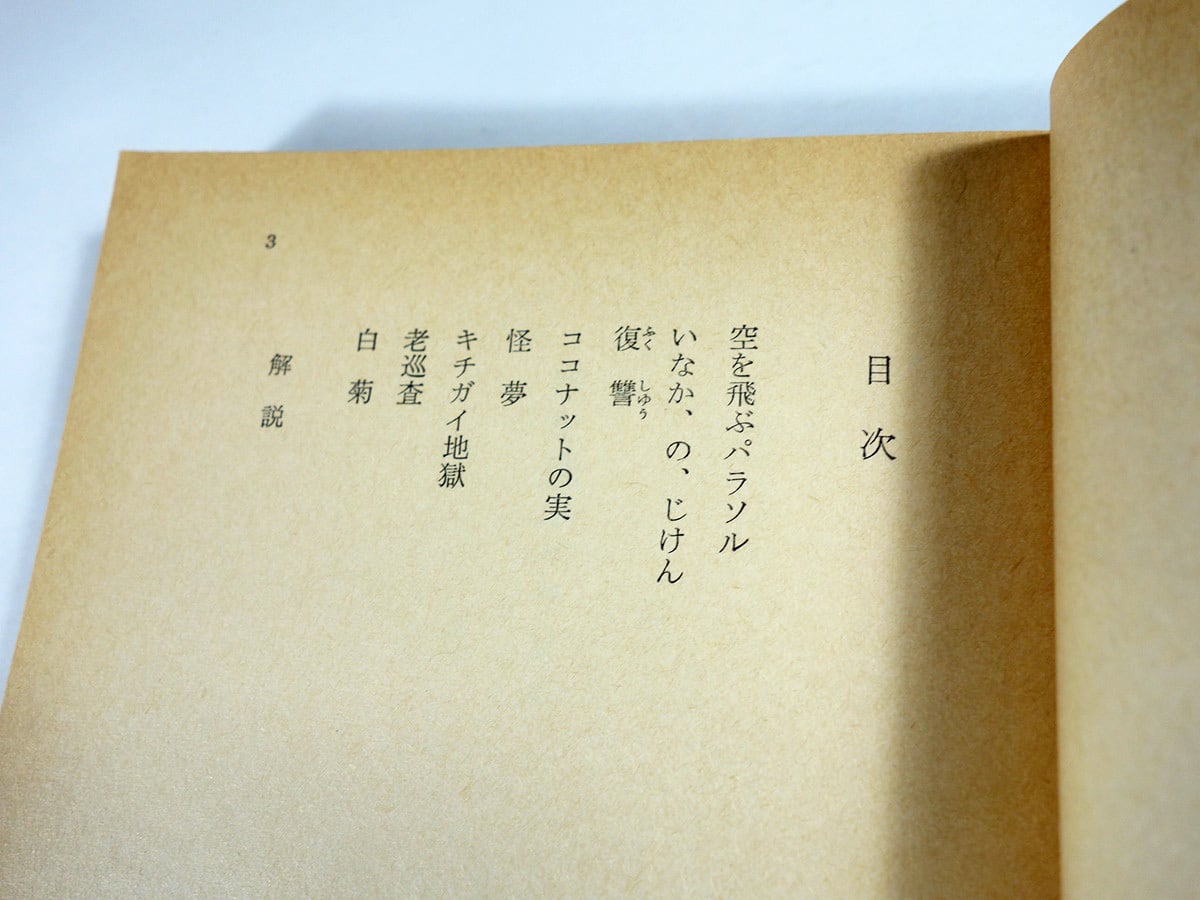 目次
空を飛ぶパラソル
いなか、の、じけん
復讐
ふくしゅう
ココナットの実
怪夢
キチガイ地獄
老巡査
白菊
解説
3